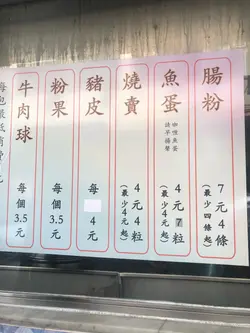 腸粉
7元4條
(最少四條起)
魚蛋
咖喱魚蛋
4元7粒
(最少4元起)
燒賣
4元4粒
(最少4元起)
豬皮
每
4元
粉果
每個
3.5元
牛肉球
每個
3.5元
每包最低消費
元